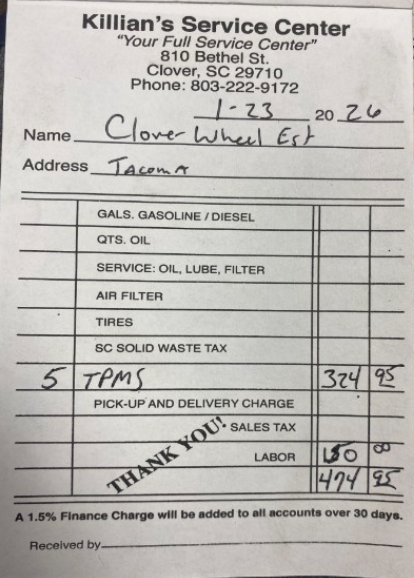 Killian's Service Center
"Your Full Service Center"
810 Bethel St.
Clover, SC 29710
Phone: 803-222-9172
1-23 20 26
Name Clover Wheel Est
Address Tacoma
GALS. GASOLINE / DIESEL
QTS. OIL
SERVICE: OIL, LUBE, FILTER
AIR FILTER
TIRES
SC SOLID WASTE TAX
5 TPMS 324 95
PICK-UP AND DELIVERY CHARGE
THANK YOU!
SALES TAX
LABOR 150 00
474 95
A 1.5% Finance Charge will be added to all accounts over 30 days.
Received by